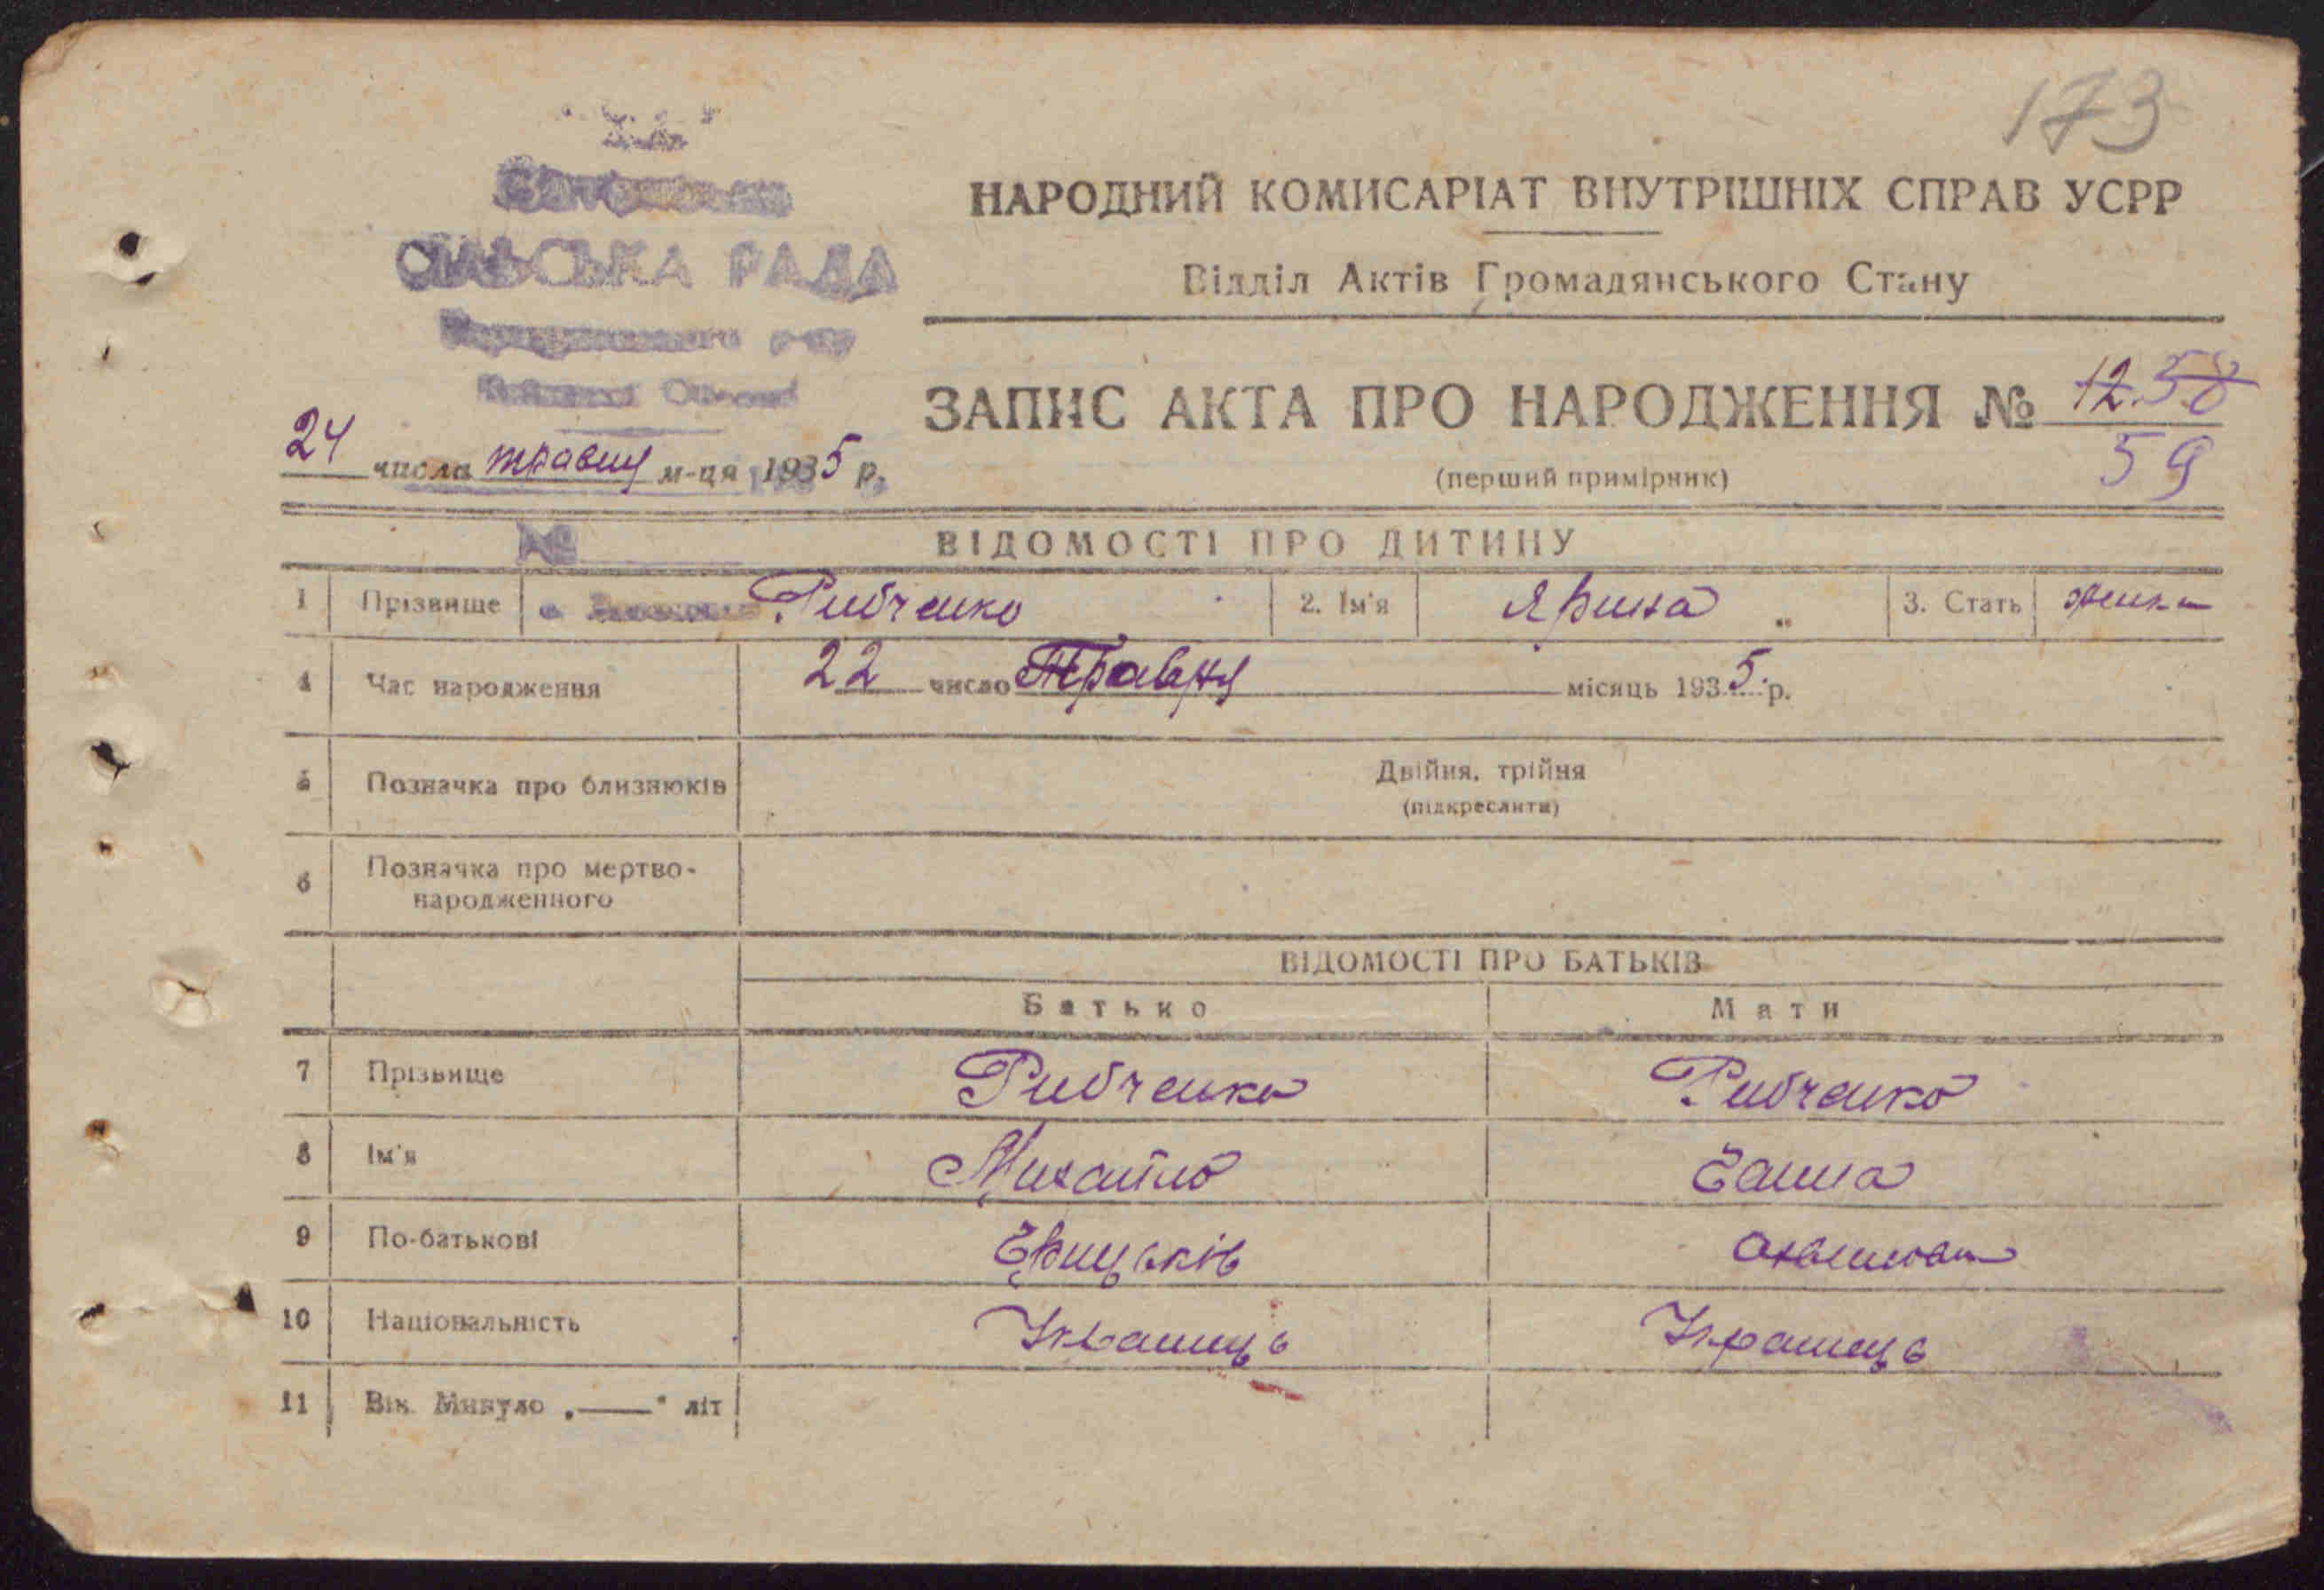 173
СІЛЬСЬКА РАДА
НАРОДНИЙ КОМИСАРІАТ ВНУТРІШНІХ СПРАВ УСРР
Відділ Актів Громадянського Стану
ЗАПИС АКТА ПРО НАРОДЖЕННЯ № 12. 58
59
(перший примірник)
24 числа травня м-ця 1935 р.
№
ВІДОМОСТІ ПРО ДИТИНУ
1 Прізвище Рибченко 2. Ім'я Ярина 3. Стать
4 Час народження 22 число Травня місяць 1935 р.
5 Позначка про близнюків Двійня, трійня
(підкреслити)
6 Позначка про мертво-
народженного
ВІДОМОСТІ ПРО БАТЬКІВ
Батько Мати
7 Прізвище Рибченко Рибченко
8 Ім'я Михайло Ганна
9 По-батькові Грицьків
10 Національність Українець Українець
11 Вік. Минуло „——" літ